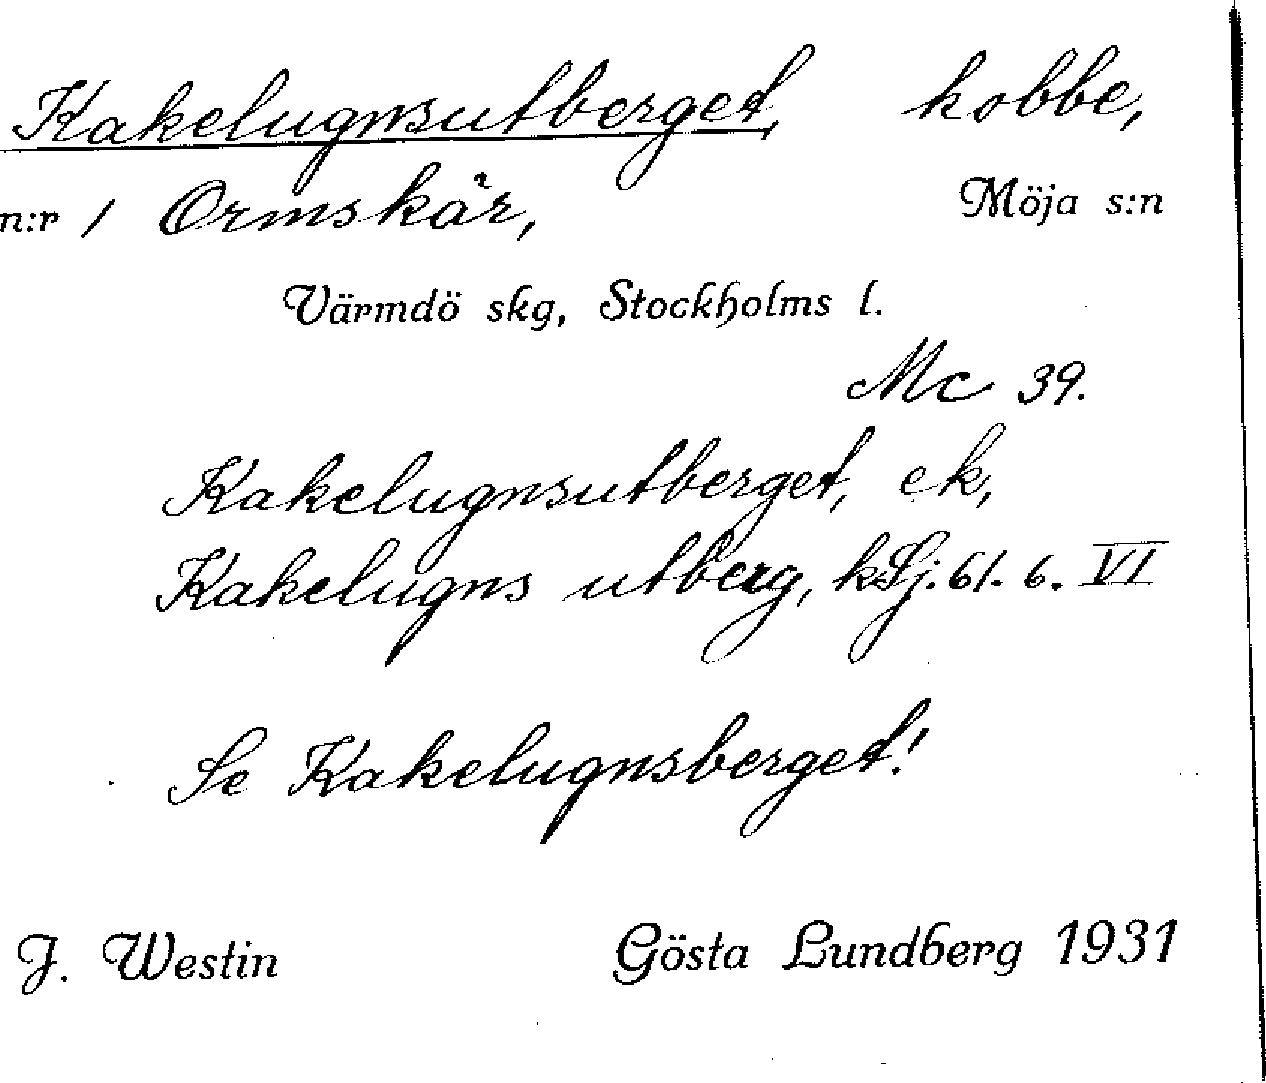 Kakelugnsutberget, kobbe,
n:r 1 Ormskär, Möja s:n
Värmdö skg, Stockholms l.
Mc 39.
Kakelugnsutberget, ek,
Kakelugns utberg, kSj. 61. 6. VI
Se Kakelugnsberget!
J. Westin Gösta Lundberg 1931